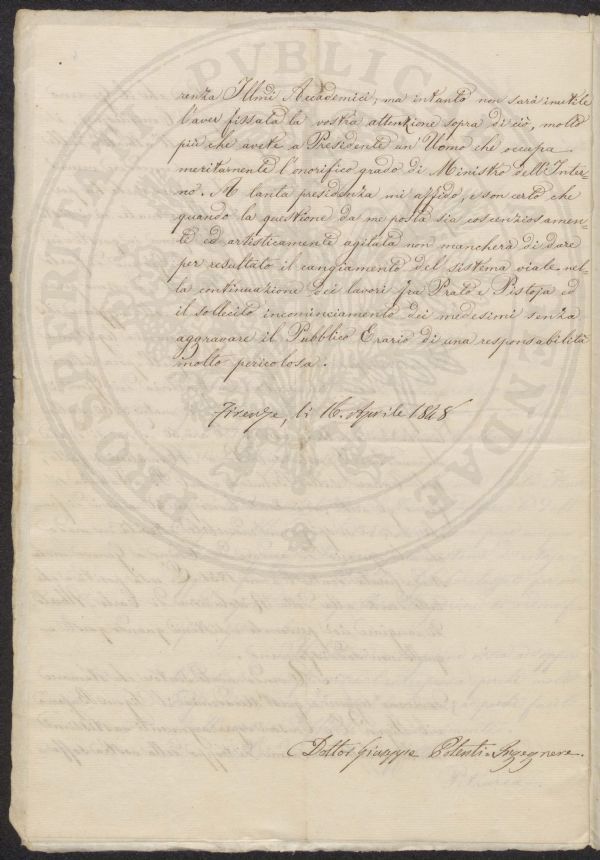 renza Illmi Accademici; ma intanto non sarà inutile
l'aver fissata la vostra attenzione sopra di ciò, molto
più che avete a Presidente un Uomo che occupa
meritamente l'onorifico grado di Ministro dell'Inter-
no. A tanta presidenza mi affido, e son certo che
quando la questione da me posta sia coscenziosamen-
te ed artisticamente agitata non mancherà di dare
per resultato il cangiamento del sistema viale nel-
la continuazione dei lavori fra Prato e Pistoja ed
il sollecito incominciamento dei medesimi senza
aggravare il Pubblico Erario di una responsabilità
molto pericolosa.
Firenze, li 16. Aprile 1848
Dottor Giuseppe Potenti Ingegnere.
PRO PUBLICA